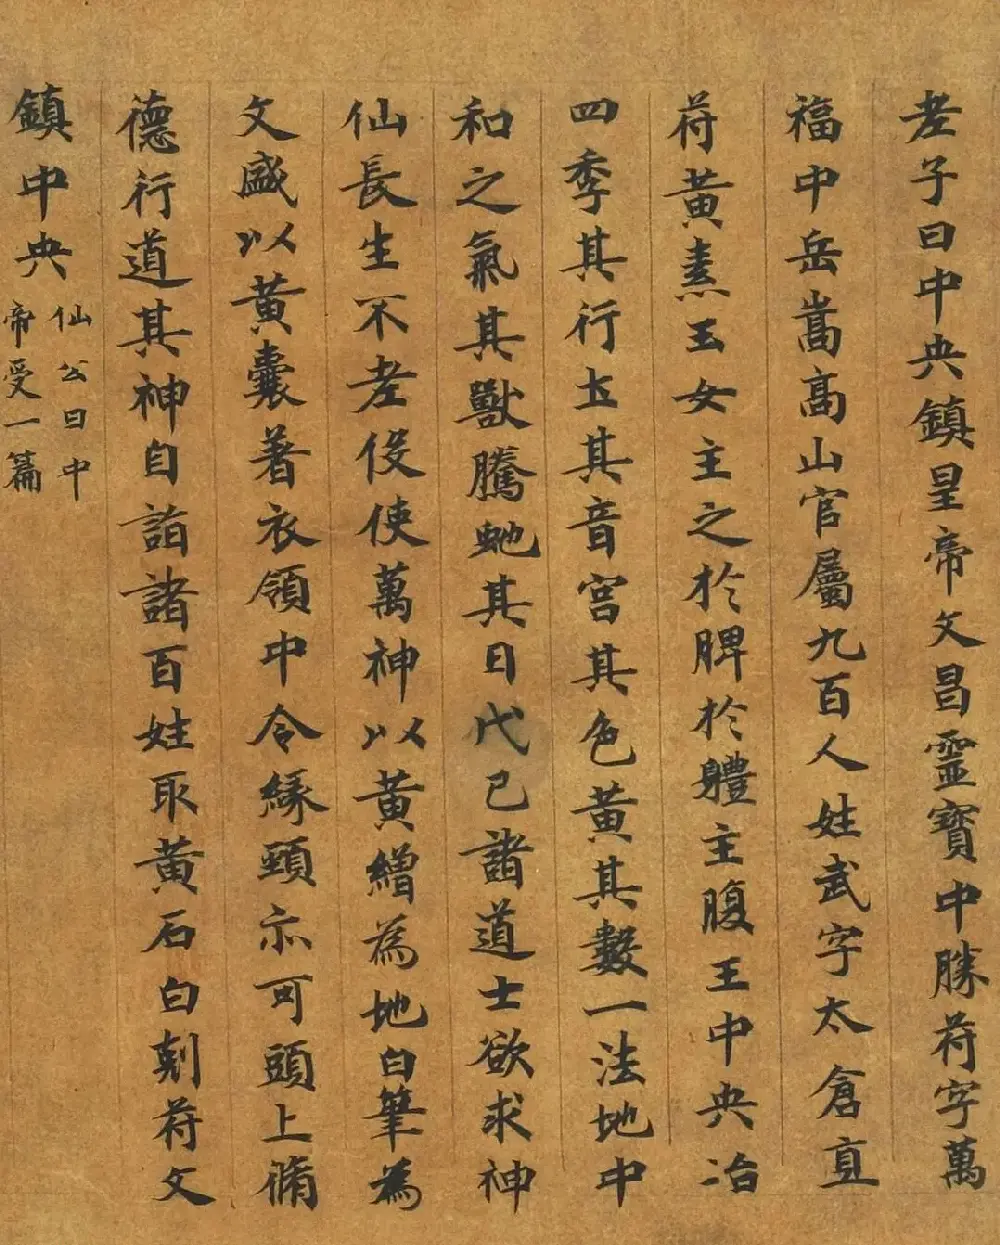 老子曰中央鎮星帝文昌靈寶中勝苻字萬
福中岳嵩高山官屬九百人姓武字太倉直
苻黃素玉女主之於脾於軆主腹王中央治
四季其行土其音宮其色黃其數一法地中
和之氣其獸騰虵其日戊己諸道士欲求神
仙長生不老役使萬神以黃繒為地白筆為
文盛以黃囊著衣領中令緣頸亦可頭上脩
德行道其神自詣諸百姓取黃石白刻苻文
鎮中央仙公曰中
帝受一篇